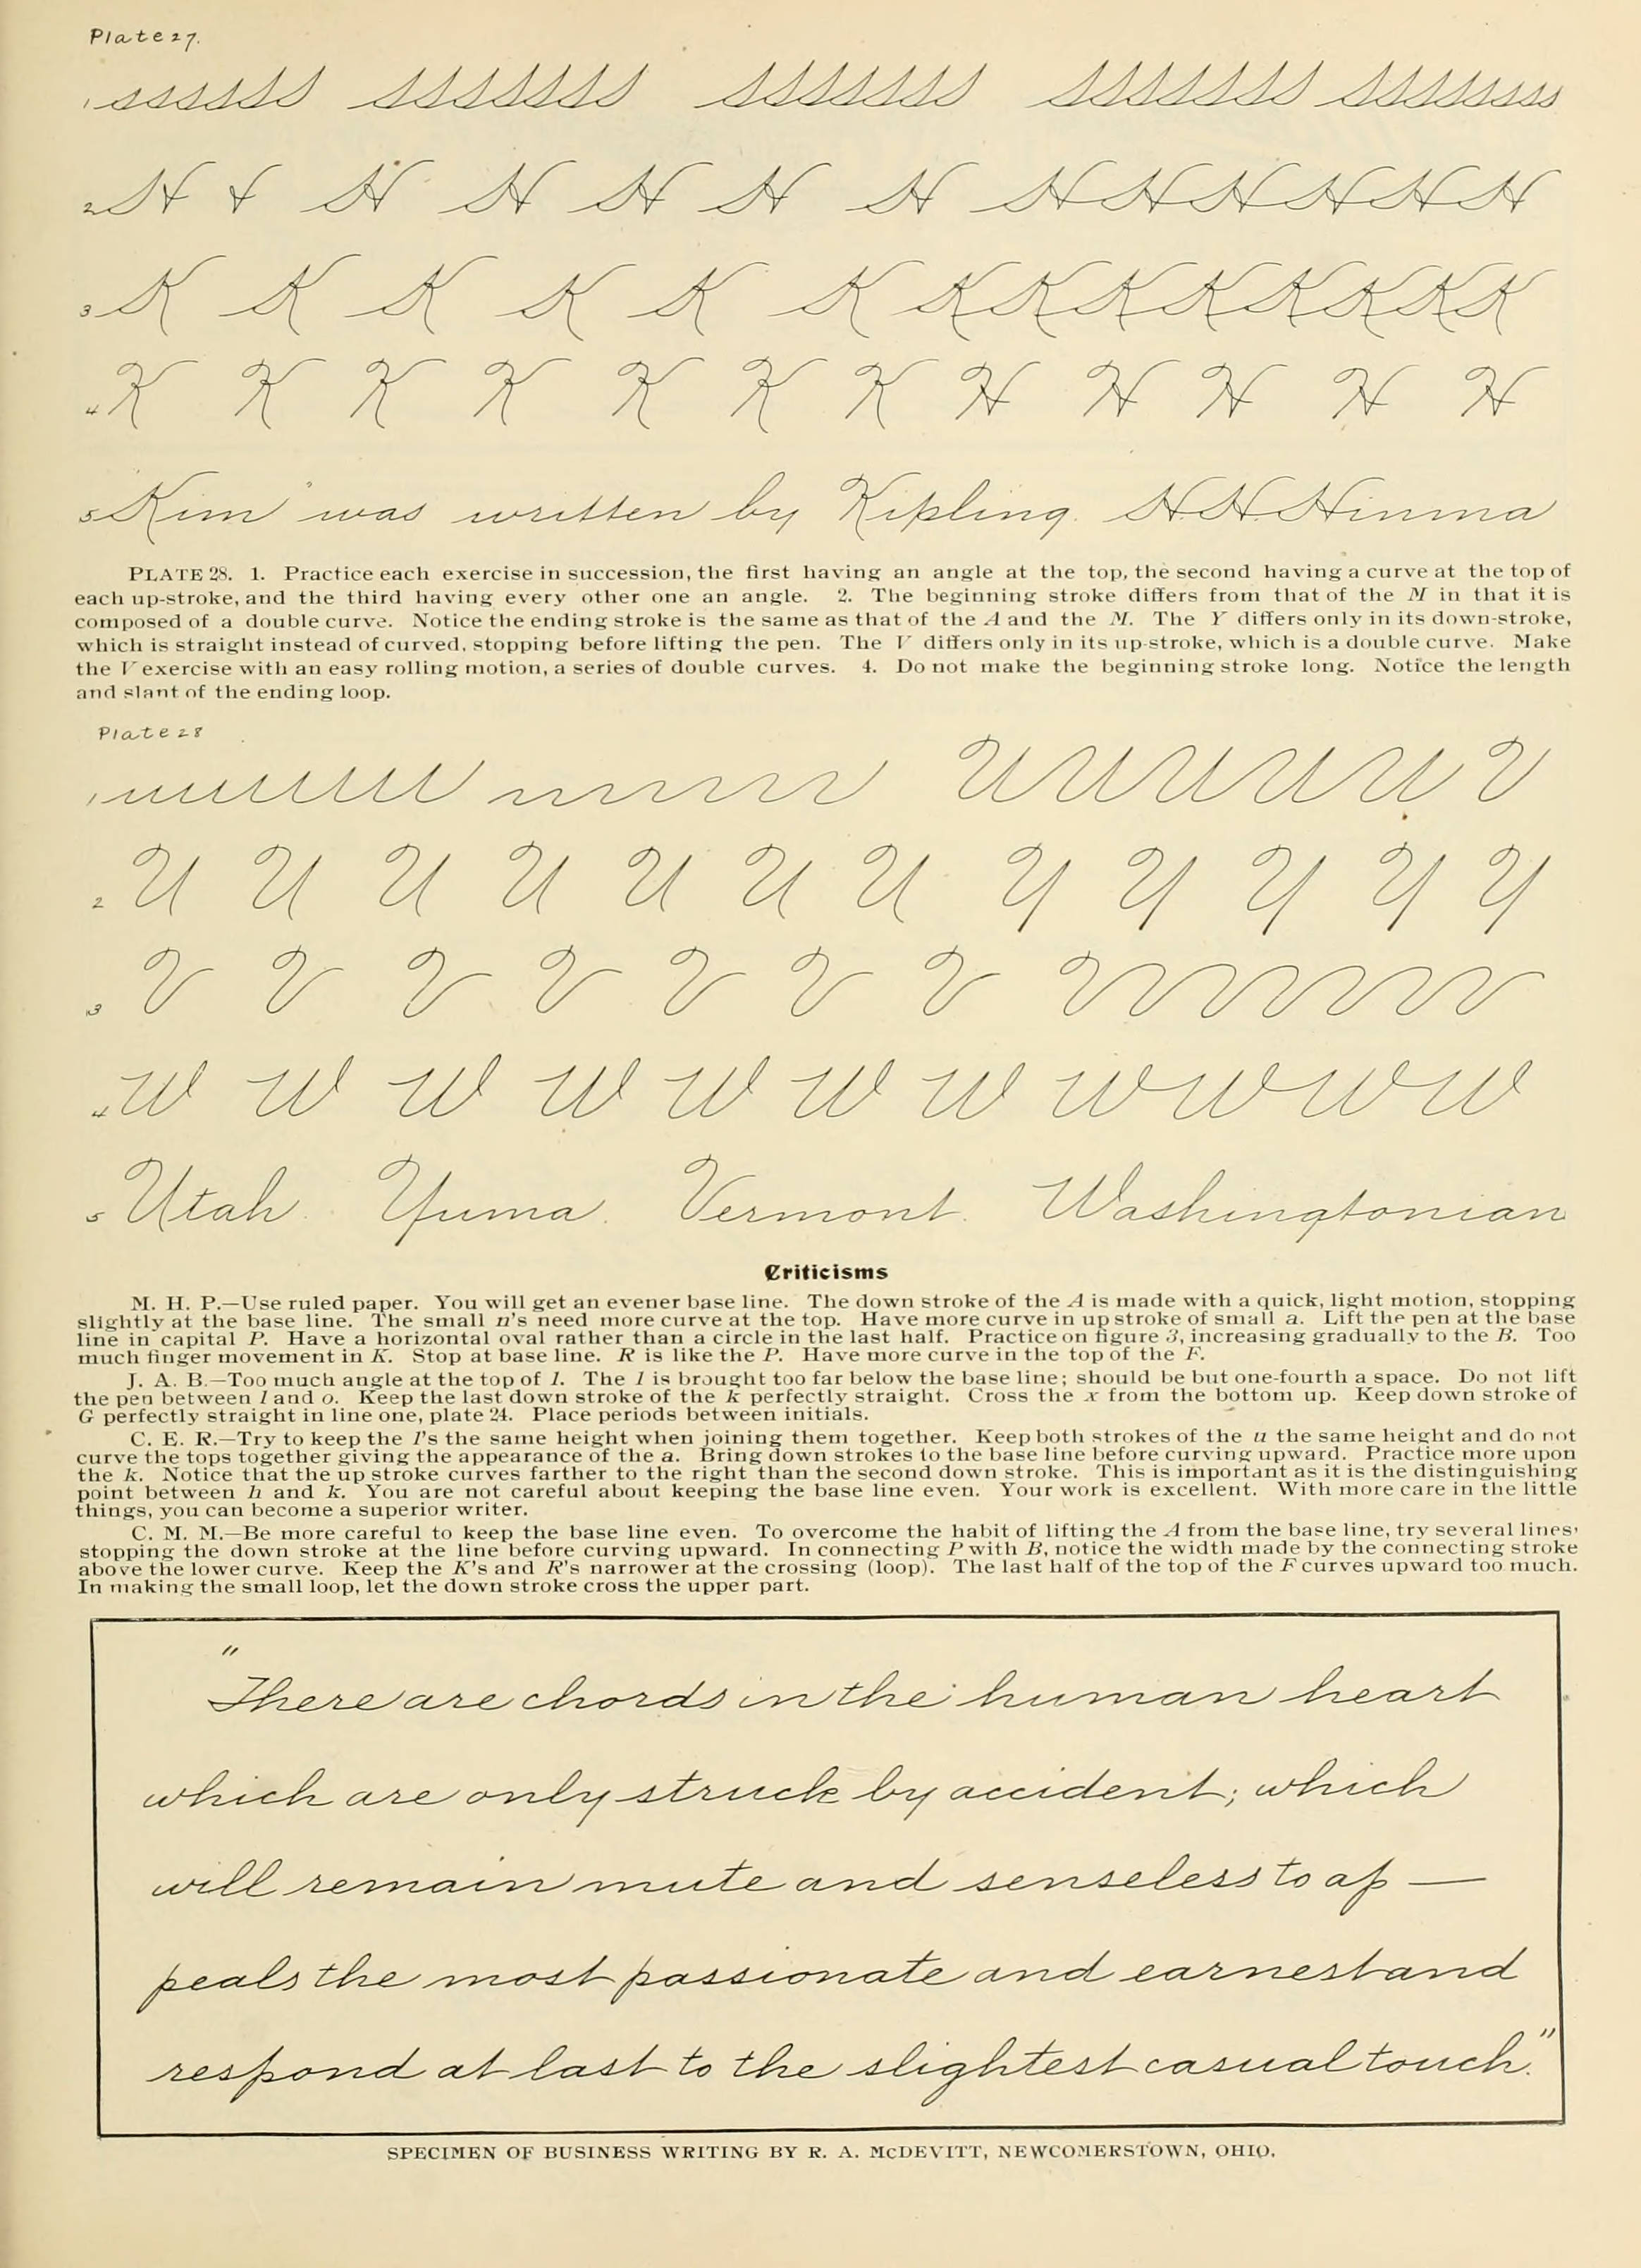 Plate 27.
1
2 H H H H H H H H H H H H
3 K K K K K K K K K K K K K K
4 K K K K K K K H H H H H
5 "Kim" was written by Kipling. H.H. Hinma
PLATE 28. 1. Practice each exercise in succession, the first having an angle at the top, the second having a curve at the top of
each up-stroke, and the third having every other one an angle. 2. The beginning stroke differs from that of the M in that it is
composed of a double curve. Notice the ending stroke is the same as that of the A and the M. The Y differs only in its down-stroke,
which is straight instead of curved, stopping before lifting the pen. The V differs only in its up-stroke, which is a double curve. Make
the V exercise with an easy rolling motion, a series of double curves. 4. Do not make the beginning stroke long. Notice the length
and slant of the ending loop.
Plate 28
1
2 U U U U U U U Y Y Y Y Y
3 V V V V V V V
4 W W W W W W W W W W W
5 Utah. Yuma. Vermont. Washingtonian
Criticisms
M. H. P.—Use ruled paper. You will get an evener base line. The down stroke of the A is made with a quick, light motion, stopping
slightly at the base line. The small n's need more curve at the top. Have more curve in up stroke of small a. Lift the pen at the base
line in capital P. Have a horizontal oval rather than a circle in the last half. Practice on figure 3, increasing gradually to the B. Too
much finger movement in K. Stop at base line. R is like the P. Have more curve in the top of the F.
J. A. B.—Too much angle at the top of l. The l is brought too far below the base line; should be but one-fourth a space. Do not lift
the pen between l and o. Keep the last down stroke of the k perfectly straight. Cross the x from the bottom up. Keep down stroke of
G perfectly straight in line one, plate 24. Place periods between initials.
C. E. R.—Try to keep the l's the same height when joining them together. Keep both strokes of the u the same height and do not
curve the tops together giving the appearance of the a. Bring down strokes to the base line before curving upward. Practice more upon
the k. Notice that the up stroke curves farther to the right than the second down stroke. This is important as it is the distinguishing
point between h and k. You are not careful about keeping the base line even. Your work is excellent. With more care in the little
things, you can become a superior writer.
C. M. M.—Be more careful to keep the base line even. To overcome the habit of lifting the A from the base line, try several lines,
stopping the down stroke at the line before curving upward. In connecting P with B, notice the width made by the connecting stroke
above the lower curve. Keep the K's and R's narrower at the crossing (loop). The last half of the top of the F curves upward too much.
In making the small loop, let the down stroke cross the upper part.
"There are chords in the human heart
which are only struck by accident; which
will remain mute and senseless to ap—
peals the most passionate and earnest and
respond at last to the slightest casual touch."
SPECIMEN OF BUSINESS WRITING BY R. A. McDEVITT, NEWCOMERSTOWN, OHIO.